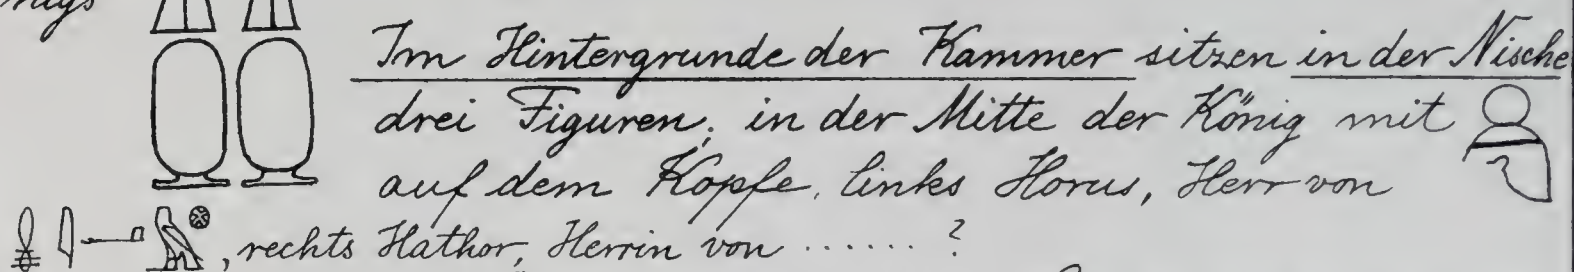 Im Hintergrunde der Kammer sitzen in der Nische
drei Figuren, in der Mitte der König mit
auf dem Kopfe, links Horus, Herr von
, rechts Hathor, Herrin von ...... ?